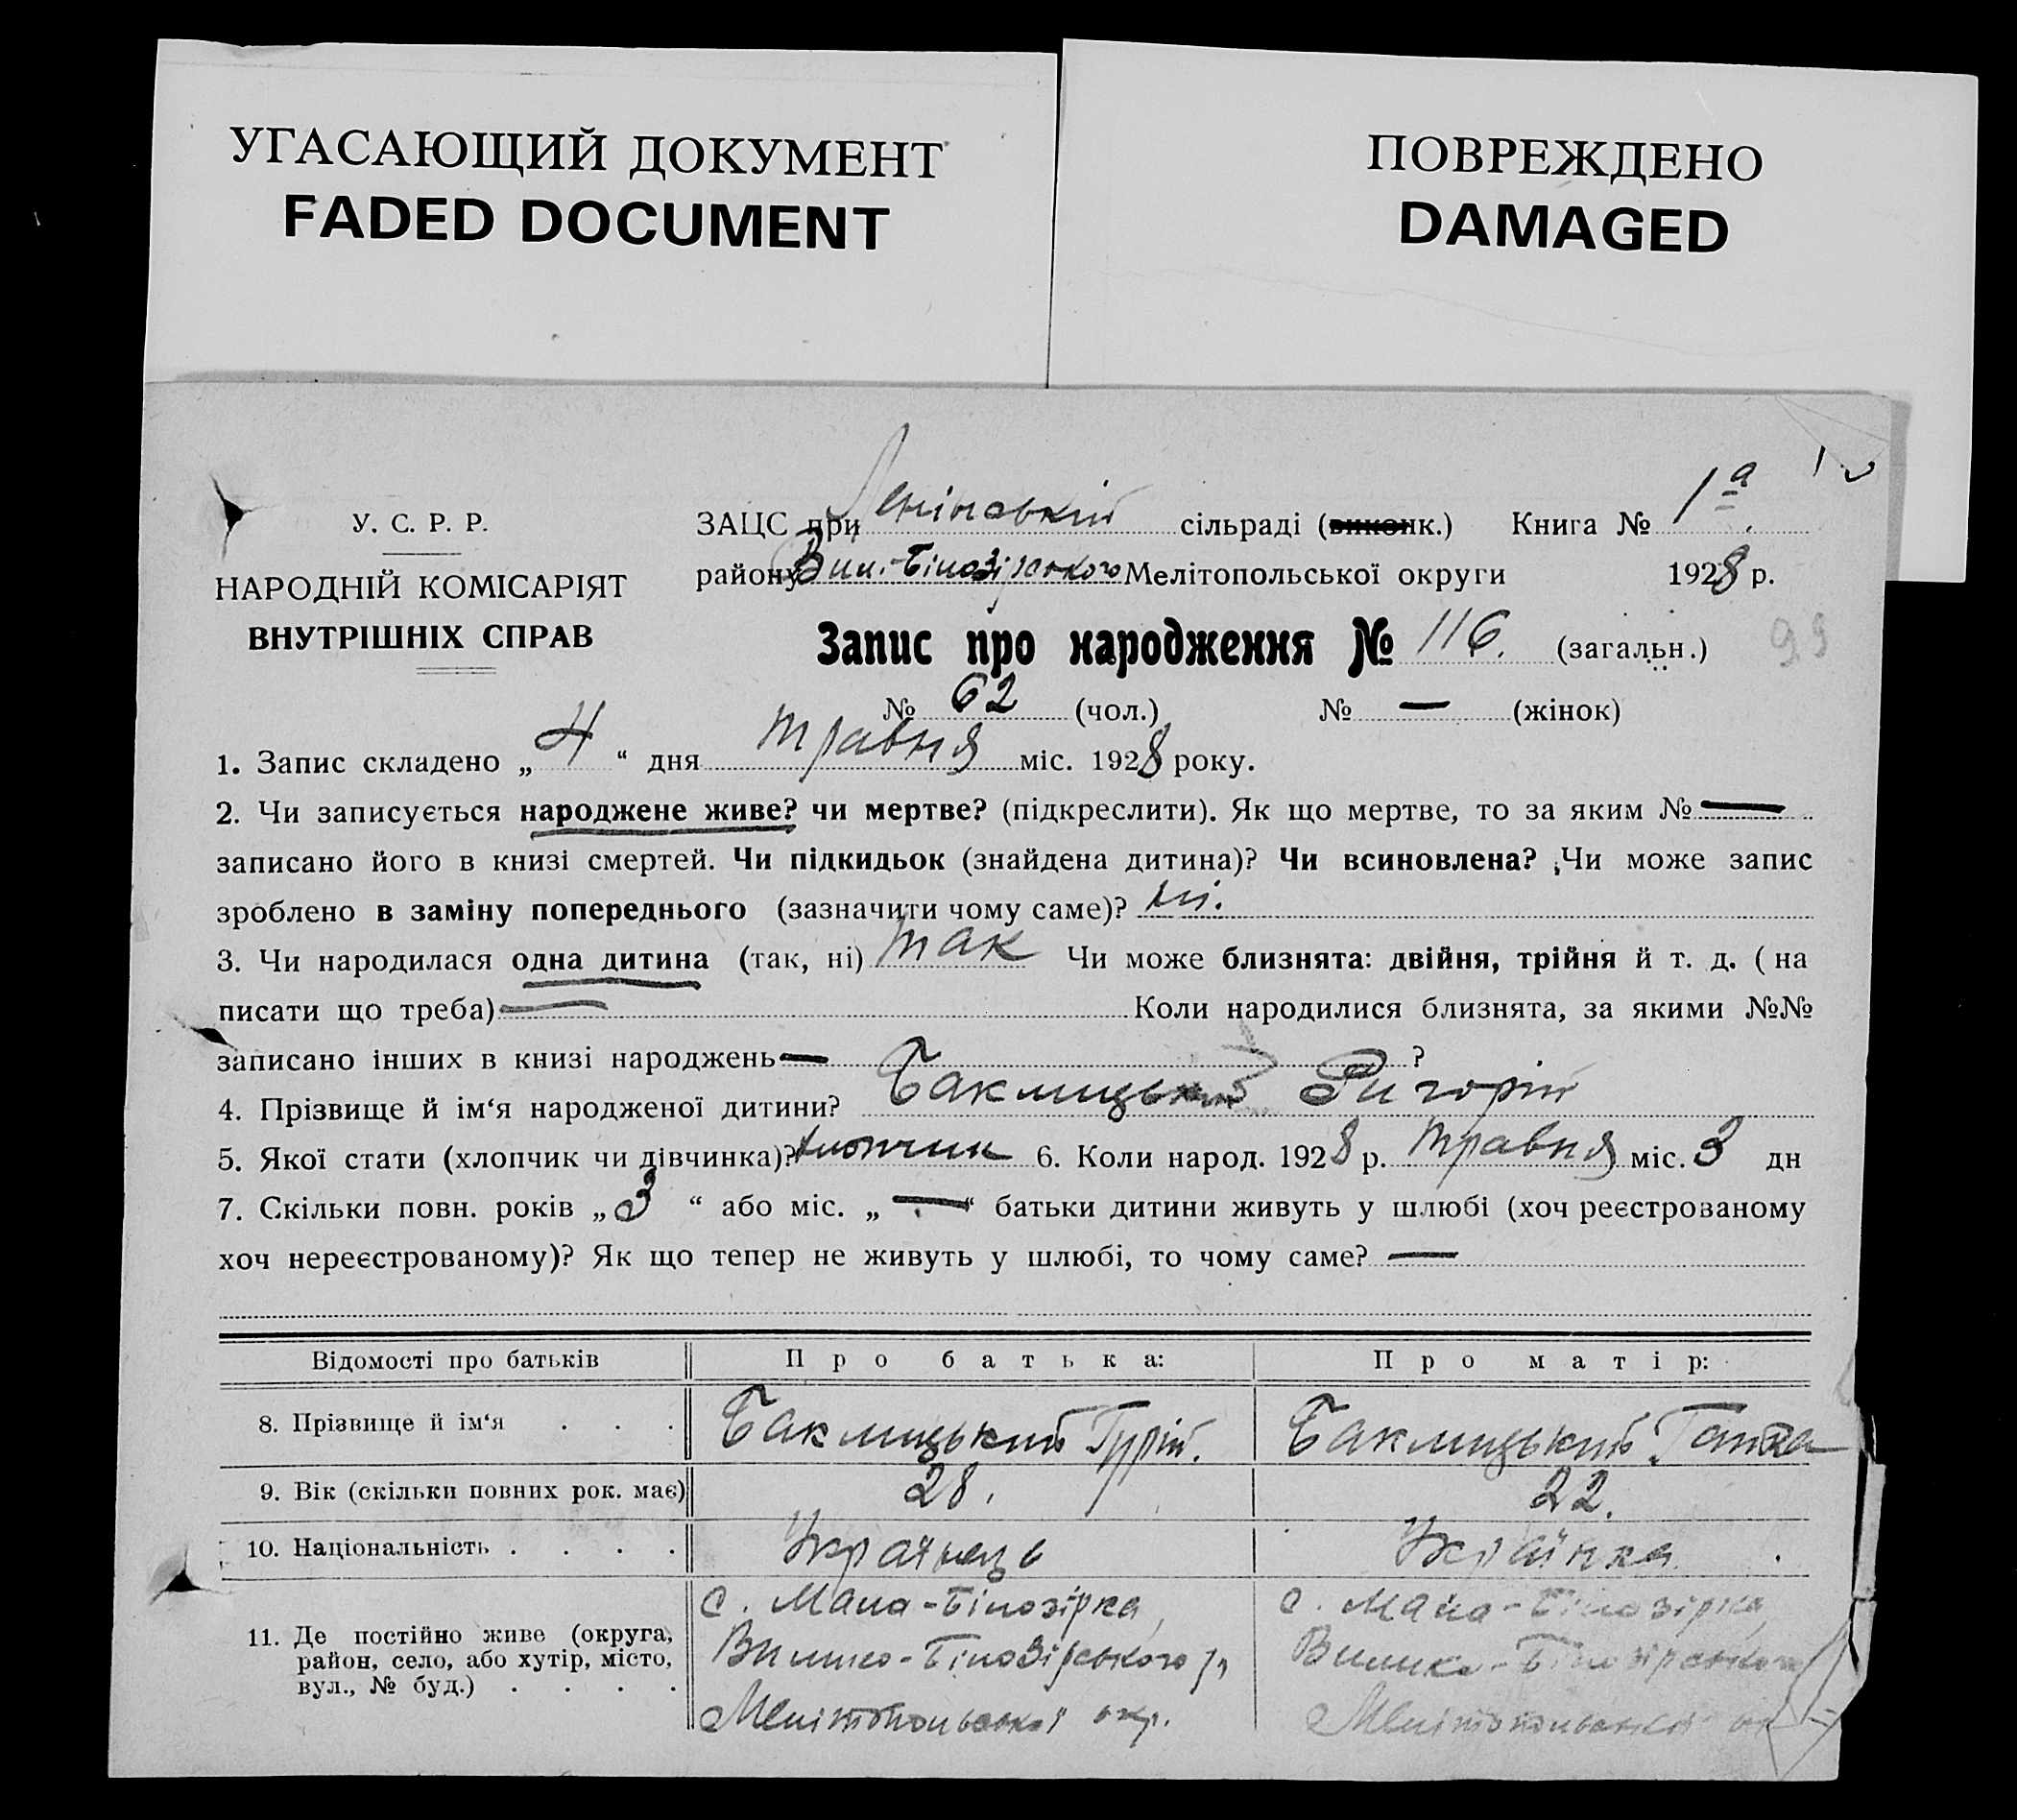 УГАСАЮЩИЙ ДОКУМЕНТ
FADED DOCUMENT
ПОВРЕЖДЕНО
DAMAGED
У. С. Р. Р.
НАРОДНІЙ КОМІСАРІЯТ
ВНУТРІШНІХ СПРАВ
ЗАЦС при Ленінській сільраді (виконк.) Книга № 1а.
району Вил.-Білозірського Мелітопольської округи 1928 р.
Запис про народження № 116. (загальн.) 99
№ 62 (чол.) № — (жінок)
1. Запис складено „ 4 “ дня травня міс. 1928 року.
2. Чи записується народжене живе? чи мертве? (підкреслити). Як що мертве, то за яким № —
записано його в книзі смертей. Чи підкидьок (знайдена дитина)? Чи всиновлена? Чи може запис
зроблено в заміну попереднього (зазначити чому саме)? ні.
3. Чи народилася одна дитина (так, ні) так Чи може близнята: двійня, трійня й т. д. ( на
писати що треба) — Коли народилися близнята, за якими №№
записано інших в книзі народжень — ?
4. Прізвище й ім‘я народженої дитини? Баклицький Григорій
5. Якої стати (хлопчик чи дівчинка)? хлопчик 6. Коли народ. 1928 р. травня міс. 3 дн
7. Скільки повн. років „ 3 “ або міс. „ — “ батьки дитини живуть у шлюбі (хоч реєстрованому
хоч нереєстрованому)? Як що тепер не живуть у шлюбі, то чому саме? —
Відомості про батьків Про батька: Про матір:
8. Прізвище й ім‘я . . . Баклицький Гурій. Баклицький Ганна
9. Вік (скільки повних рок. має) 28. 22.
10. Національність . . . . Українець Українка
11. Де постійно живе (округа, район, село, або хутір, місто, вул., № буд.) . . . .
с. Мала-Білозірка, Вилико-Білозірського р. Мелітопольської окр.
с. Мала-Білозірка Вилико-Білозірського Мелітопольської